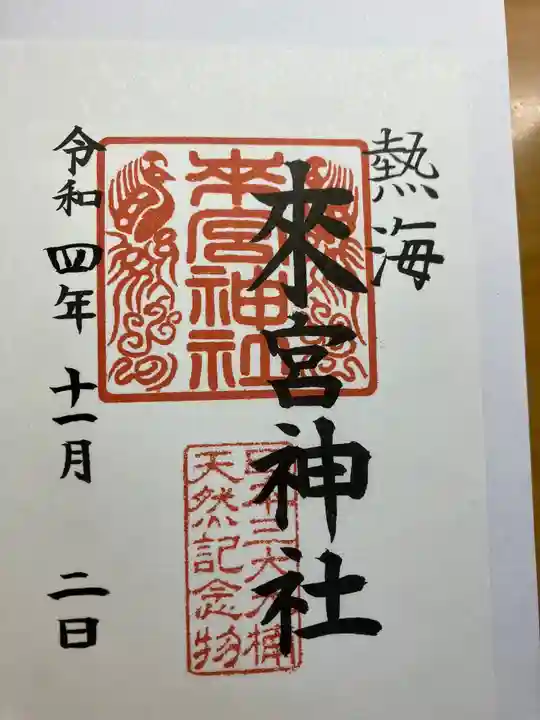 熱海
來宮神社
來宮神社
日本三大大楠
天然記念物
令和四年十一月二日